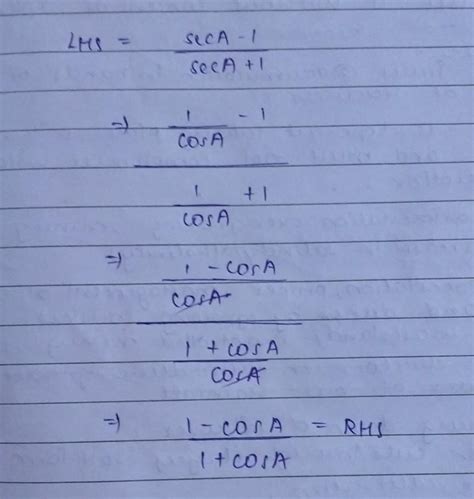 LHS = secA - 1
secA + 1
⇒ 1 - 1
cosA
1 + 1
cosA
⇒ 1 - cosA
cosA
1 + cosA
cosA
⇒ 1 - cosA = RHS
1 + cosA